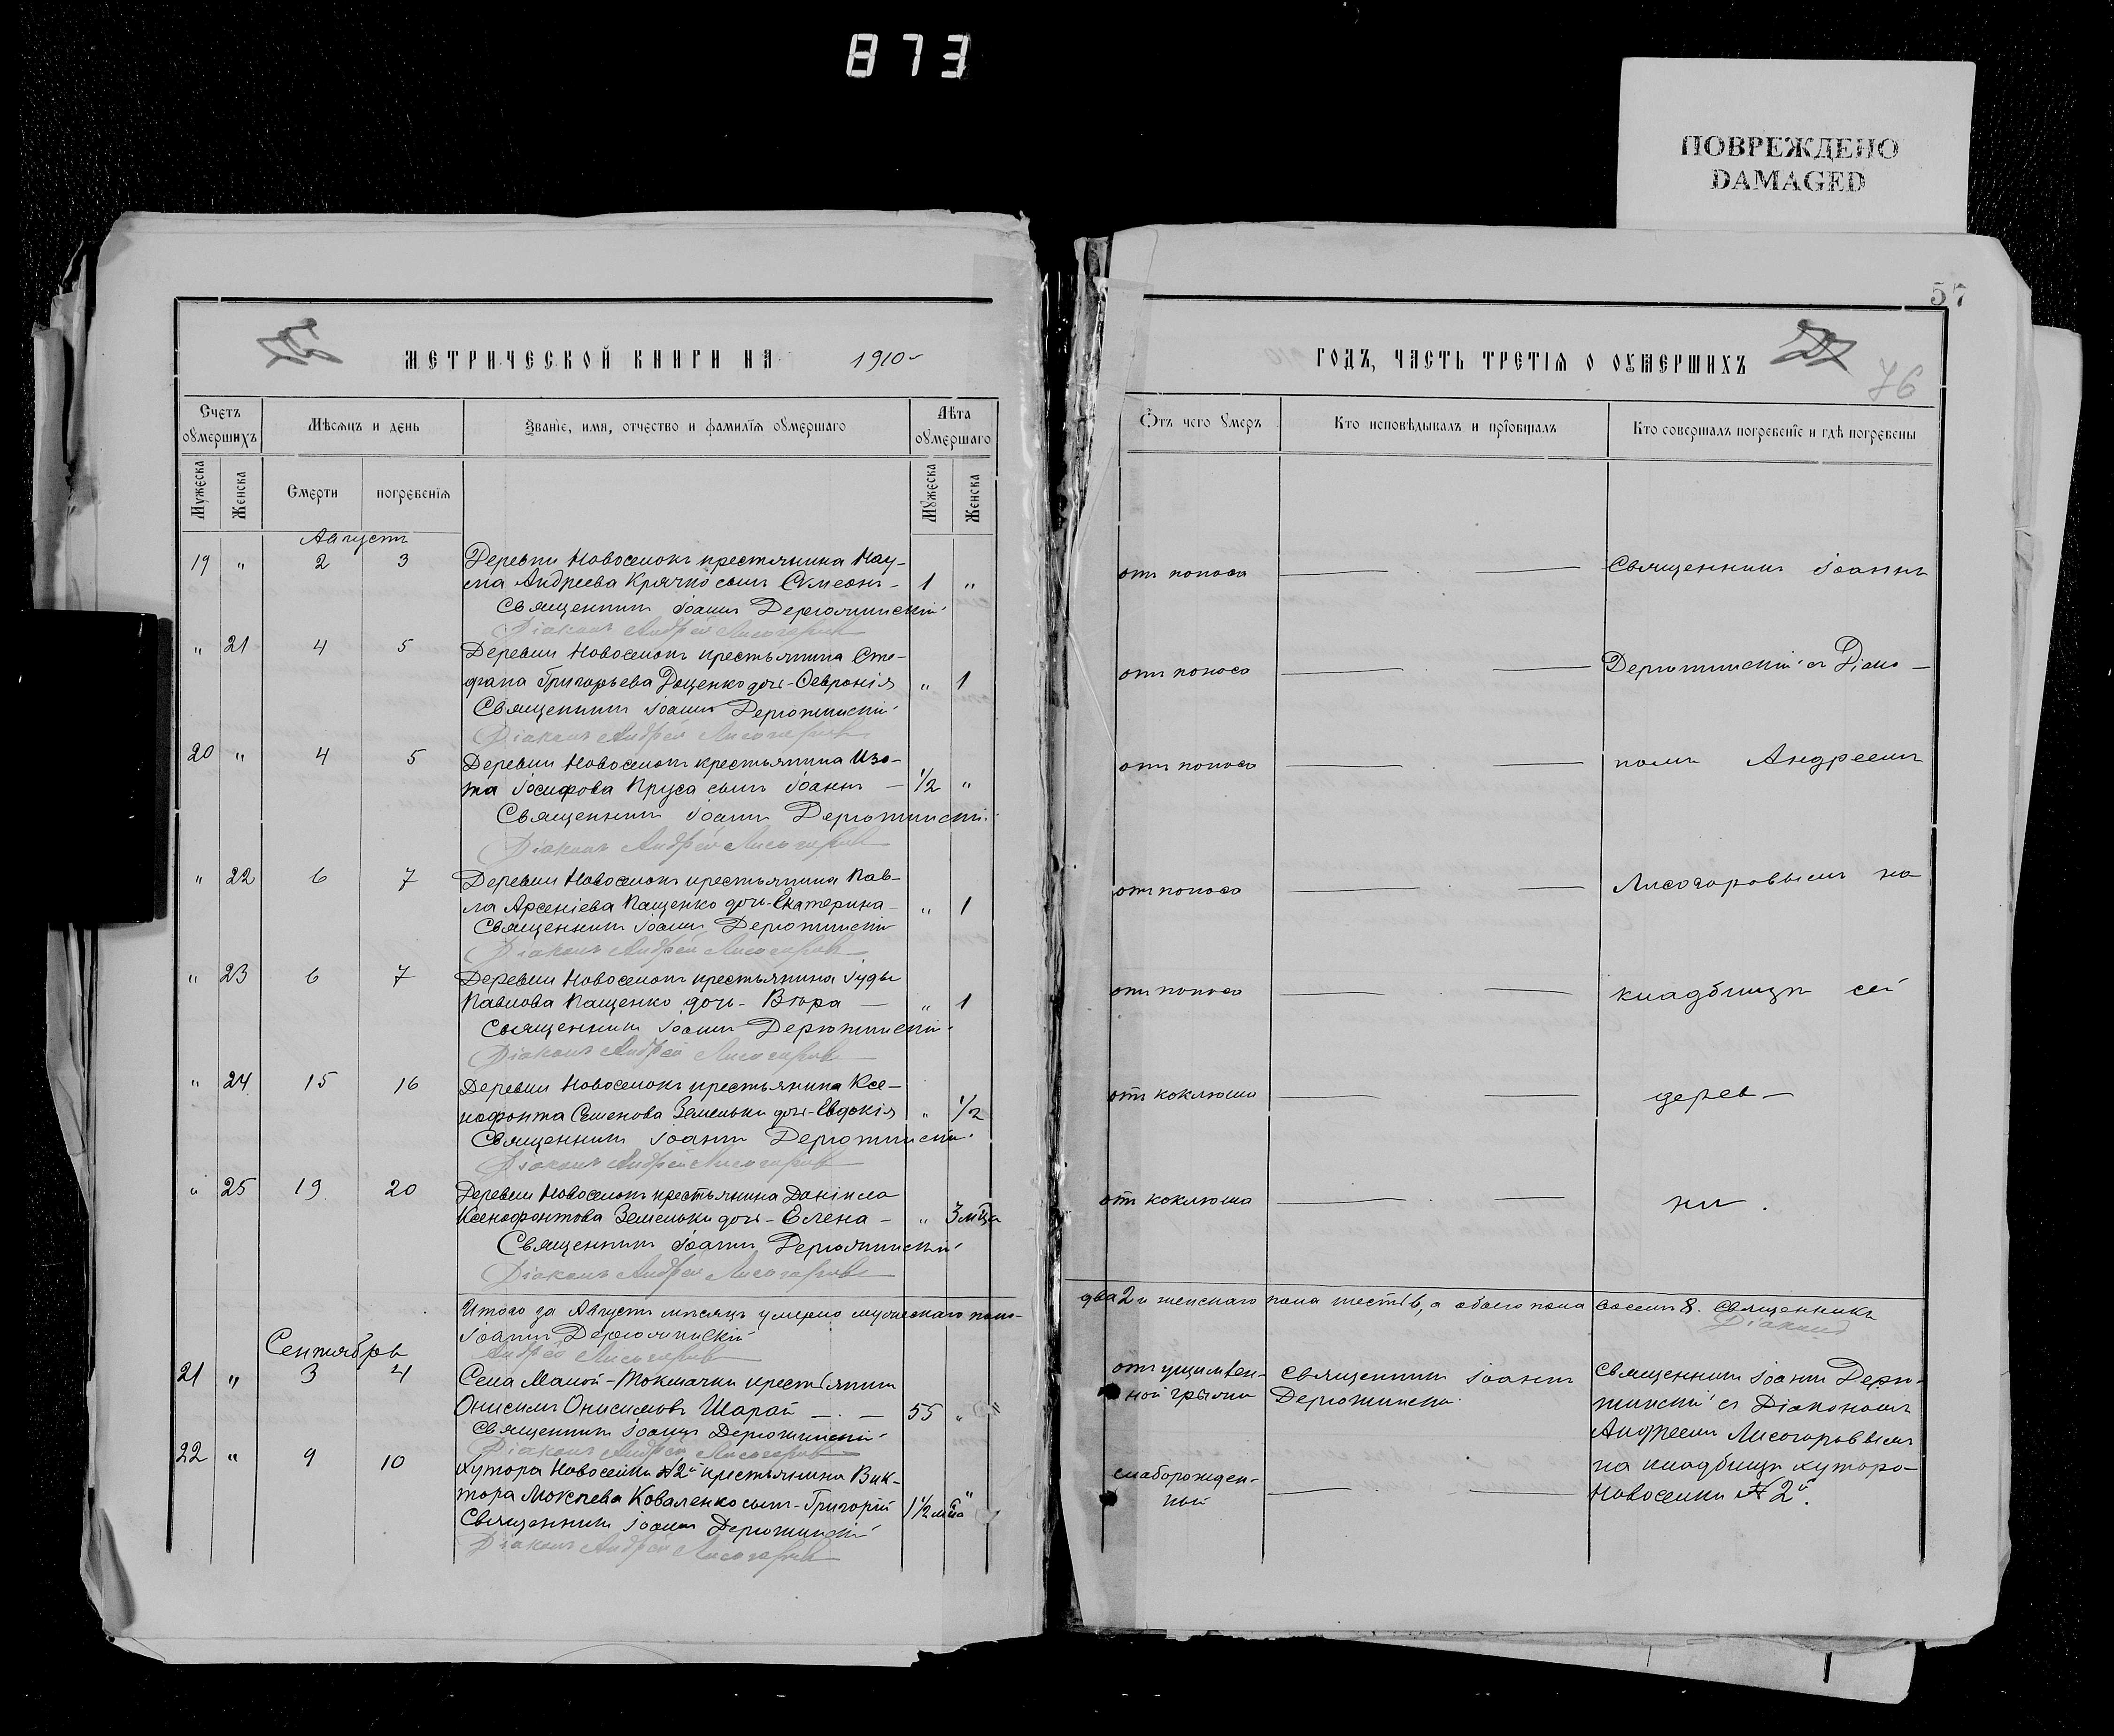 873
ПОВРЕЖДЕНО
DAMAGED
57
МЕТРИЧЕСКОЙ КНИГИ НА 1910
Счетъ умершихъ
Мѣсяцъ и день
Званіе, имя, отчество и фамилія умершаго
Лѣта умершаго
Мужеска
Женска
Смерти
погребенія
Мужеска
Женска
Августъ
19 " 2 3 Деревни Новоселокъ крестьянина Нау-
ма Андреева Крячко сынъ Симеонъ - 1 "
Священникъ Іоаннъ Дерюжинскій
Діаконъ Андрей Лисогоровъ
" 21 4 5 Деревни Новоселокъ крестьянина Сте-
фана Григорьева Доценко дочь - Февронія " 1
Священникъ Іоаннъ Дерюжинскій
Діаконъ Андрей Лисогоровъ
20 " 4 5 Деревни Новоселокъ крестьянина Изо-
та Іосифова Пруса сынъ Іоаннъ - 1/2 "
Священникъ Іоаннъ Дерюжинскій
Діаконъ Андрей Лисогоровъ
" 22 6 7 Деревни Новоселокъ крестьянина Пав-
ла Арсеніева Пащенко дочь - Екатерина - " 1
Священникъ Іоаннъ Дерюжинскій
Діаконъ Андрей Лисогоровъ
" 23 6 7 Деревни Новоселокъ крестьянина Іуды
Павлова Пащенко дочь - Вѣра - " 1
Священникъ Іоаннъ Дерюжинскій
Діаконъ Андрей Лисогоровъ
" 24 15 16 Деревни Новоселокъ крестьянина Ксе-
нофонта Семенова Земельки дочь - Евдокія " 1/2
Священникъ Іоаннъ Дерюжинскій
Діаконъ Андрей Лисогоровъ
" 25 19 20 Деревни Новоселокъ крестьянина Даніила
Ксенофонтова Земельки дочь - Елена - " 3 м-ца
Священникъ Іоаннъ Дерюжинскій
Діаконъ Андрей Лисогоровъ
Итого за Августъ мѣсяцъ умерло мужескаго пола
Іоаннъ Дерюжинскій
Андрей Лисогоровъ
Сентябрь
21 " 3 4 Села Малой-Токмачки крестьянинъ
Онисимъ Онисимовъ Шарай - . - 55 "
Священникъ Іоаннъ Дерюжинскій
Діаконъ Андрей Лисогоровъ
22 " 9 10 Хутора Новоселки № 2й крестьянина Вик-
тора Мокіева Коваленко сынъ - Григорій 1 1/2 м-ца "
Священникъ Іоаннъ Дерюжинскій
Діаконъ Андрей Лисогоровъ
ГОДЪ, ЧАСТЬ ТРЕТІЯ О УМЕРШИХЪ
76
Отъ чего умеръ
Кто исповѣдывалъ и пріобщалъ
Кто совершалъ погребеніе и гдѣ погребены
отъ поноса Священникъ Іоаннъ
отъ поноса Дерюжинскій съ Діако-
отъ поноса номъ Андреемъ
отъ поноса Лисогоровымъ на
отъ поноса кладбищѣ сей
отъ коклюша дерев-
отъ коклюша ни.
два 2 и женскаго пола шесть 6, а обоего пола восемь 8. Священникъ
Діаконъ
отъ ущемлен-
ной грыжи
Священникъ Іоаннъ
Дерюжинскій
Священникъ Іоаннъ Дерю-
жинскій съ Діакономъ
Андреемъ Лисогоровымъ
на кладбищѣ хутора
Новоселки № 2й.
слаборожден-
ный